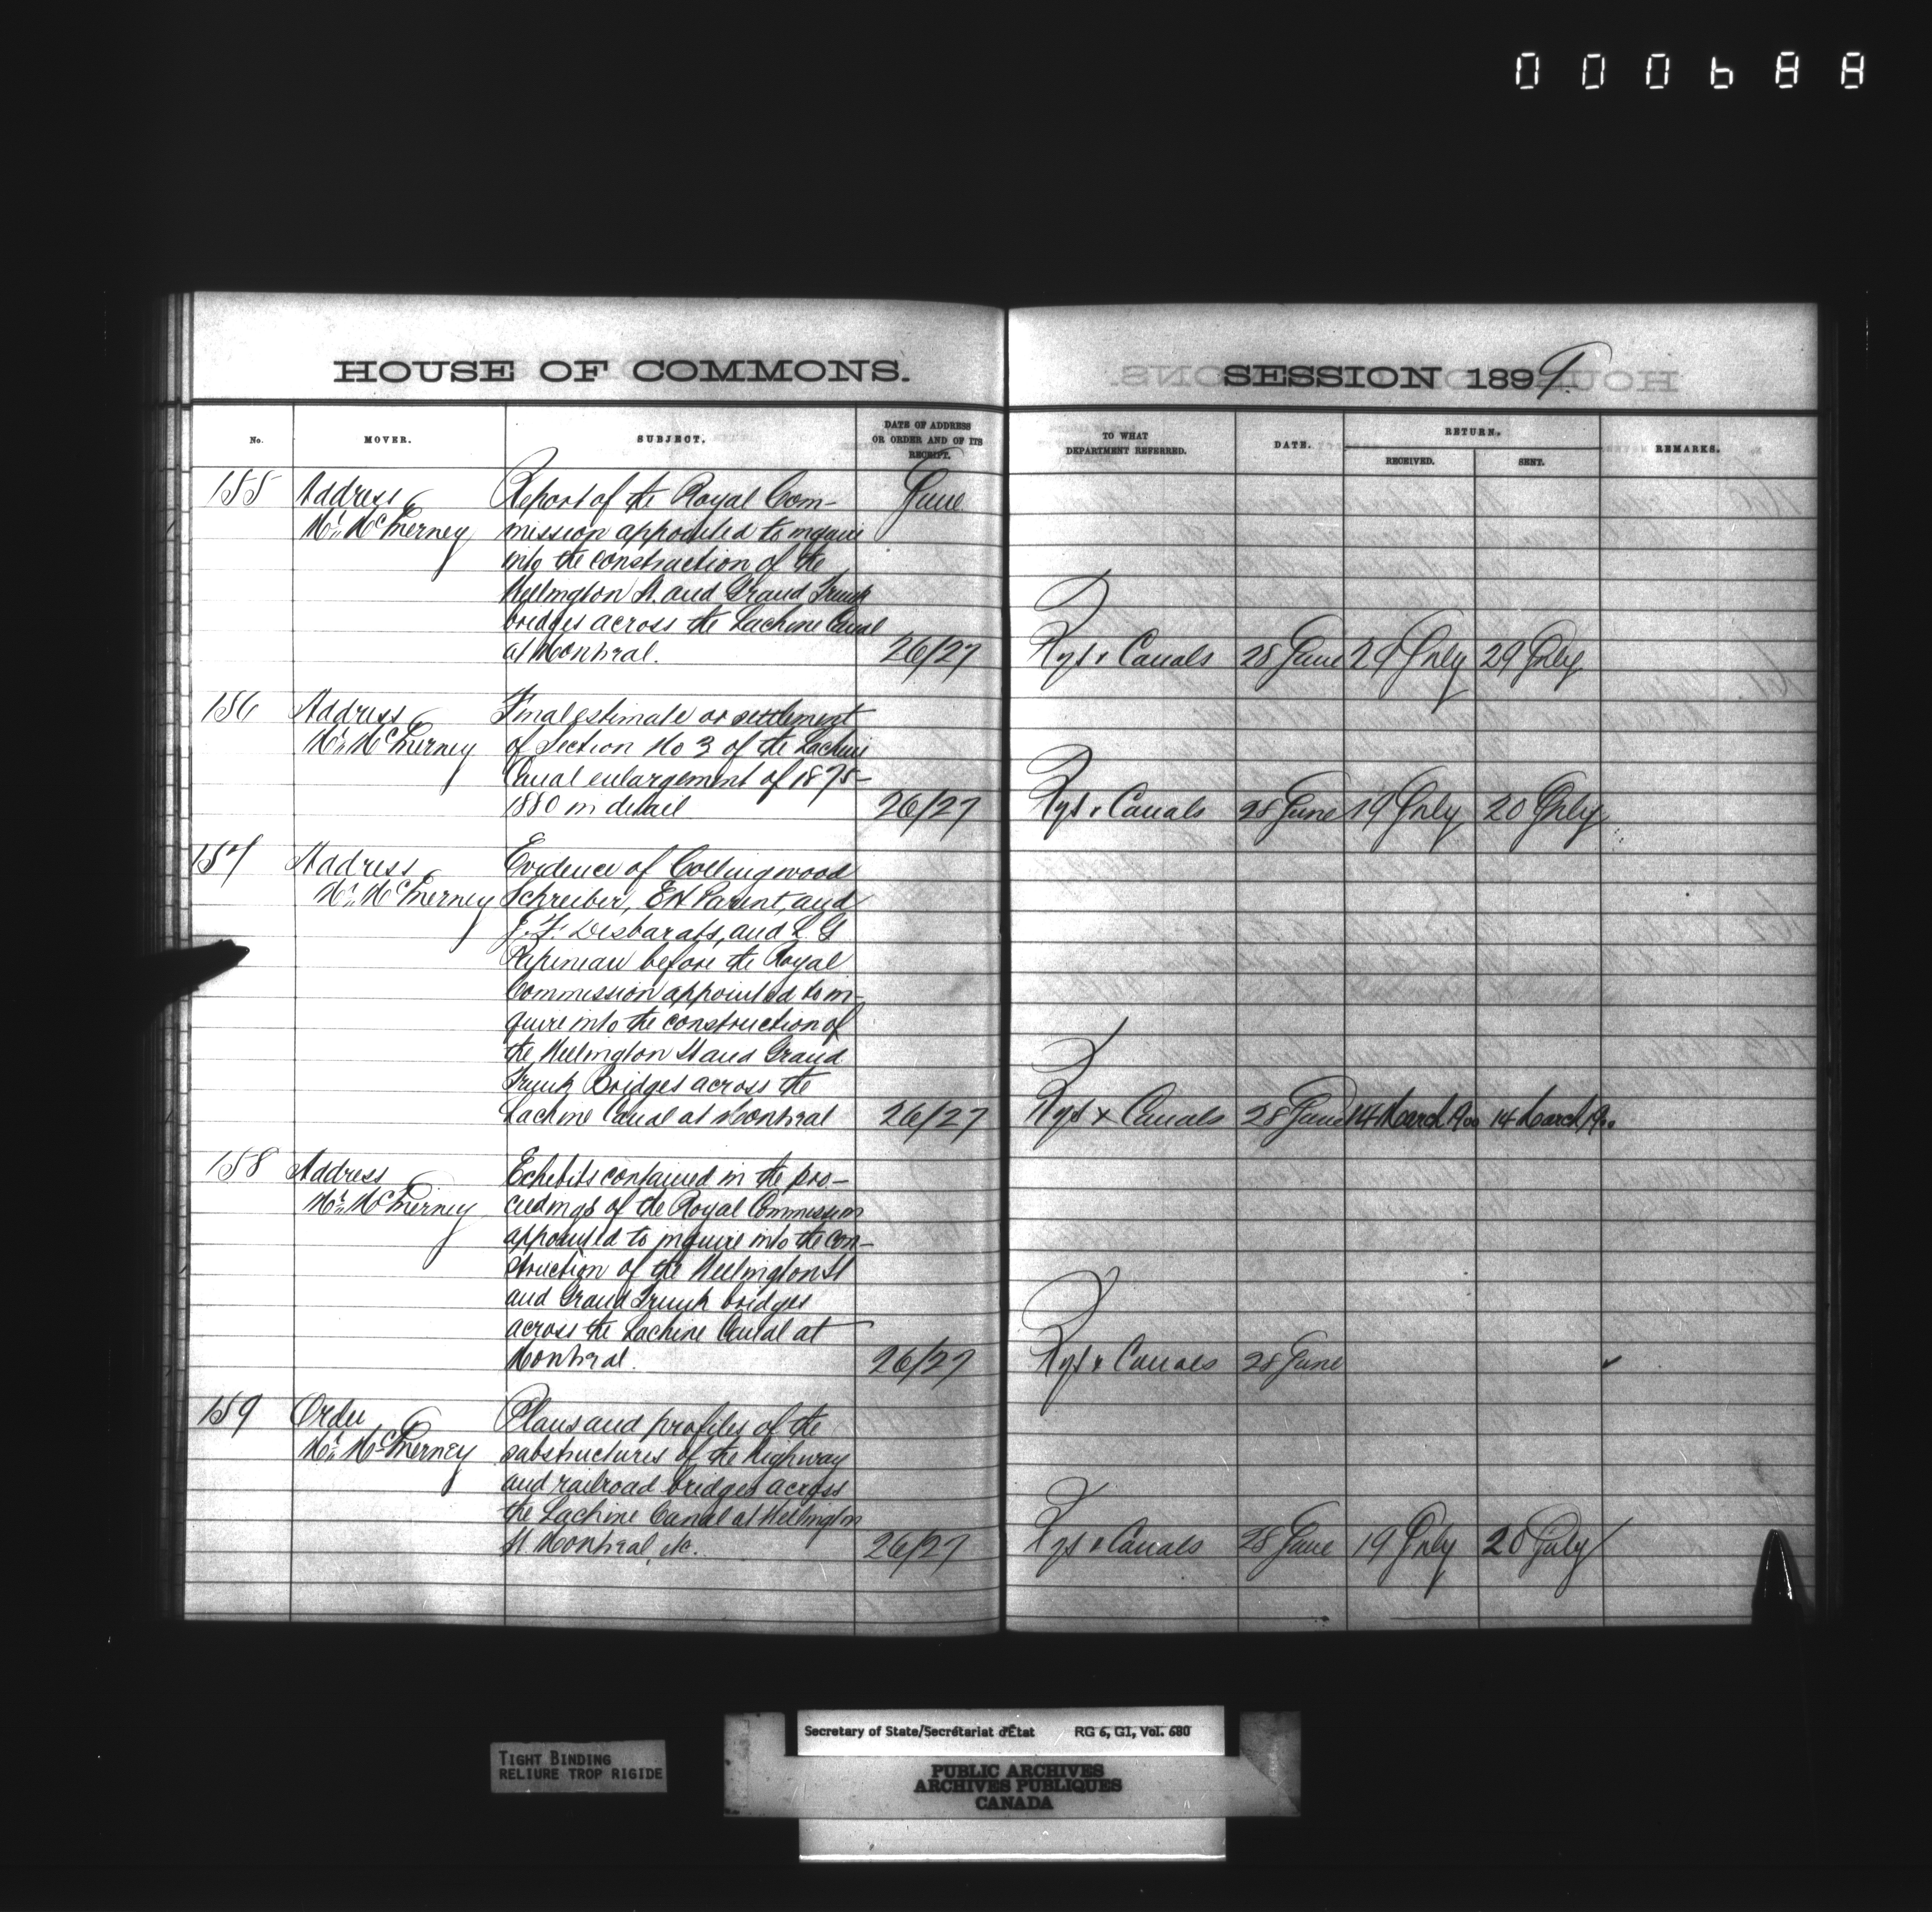 000688
HOUSE OF COMMONS.
SESSION 1899.
No. MOVER. SUBJECT. DATE OF ADDRESS OR ORDER AND OF ITS RECEIPT. TO WHAT DEPARTMENT REFERRED. DATE. RETURN. RECEIVED. SENT. REMARKS.
155 Address Report of the Royal Com- June
Mr. McInerney mission appointed to inquire
into the construction of the
Wellington St. and Grand Trunk
bridges across the Lachine Canal
at Montreal. 26/27 Rys & Canals 28 June 29 July 29 July
156 Address Final estimate or settlement
Mr. McInerney of Section No 3 of the Lachine
Canal enlargement of 1875-
1880 in detail 26/27 Rys & Canals 28 June 19 July 20 July
157 Address Evidence of Collingwood
Mr. McInerney Schreiber, EH Parent, and
J.F. Desbarats, and L G
Papineau before the Royal
Commission appointed to in-
quire into the construction of
the Wellington St and Grand
Trunk Bridges across the
Lachine Canal at Montreal 26/27 Rys & Canals 28 June 14 March 1900 14 March 1900
158 Address Exhibits contained in the pro-
Mr. McInerney ceedings of the Royal Commission
appointed to inquire into the con-
struction of the Wellington St
and Grand Trunk bridges
across the Lachine Canal at
Montreal. 26/27 Rys & Canals 28 June ✓
159 Order Plans and profiles of the
Mr. McInerney substructures of the highway
and railroad bridges across
the Lachine Canal at Wellington
St. Montreal, etc. 26/27 Rys & Canals 28 June 19 July 20 July
Secretary of State/Secrétariat d'État RG 6, G1, Vol. 680
TIGHT BINDING
RELIURE TROP RIGIDE
PUBLIC ARCHIVES
ARCHIVES PUBLIQUES
CANADA